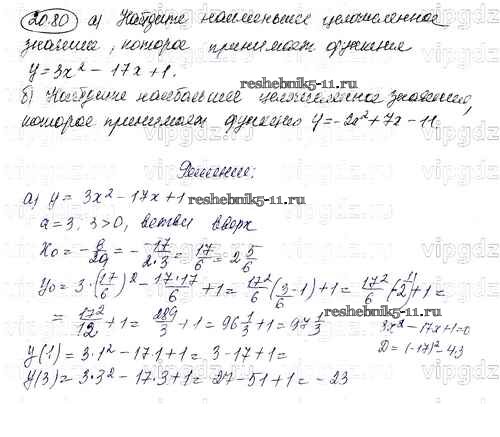 20.80 а) Найдите наименьшее целочисленное
значение, которое принимает функция
y = 3x² - 17x + 1.
reshebnik5-11.ru
б) Найдите наибольшее целочисленное значение,
которое принимает функция y = -2x² + 7x - 11.
Решение:
а) y = 3x² - 17x + 1
reshebnik5-11.ru
a = 3; 3 > 0, ветви вверх
x₀ = - b/2a = - 17/2·3 = 17/6 = 2 5/6
y₀ = 3·(17/6)² - 17·17/6 + 1 = 17²/6 (3/6 - 1) + 1 = 17²/6 (-1/2) + 1 =
= 17²/12 + 1 = 289/3 + 1 = 96 1/3 + 1 = 97 1/3
reshebnik5-11.ru
3x² - 17x + 1 = 0
D = (-17)² - 4·3
y(1) = 3·1² - 17·1 + 1 = 3 - 17 + 1 =
y(3) = 3·3² - 17·3 + 1 = 27 - 51 + 1 = - 23